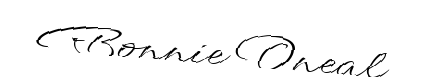 Ronnie Oneal